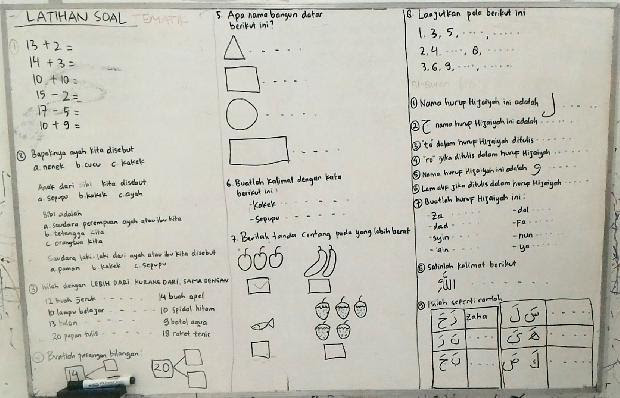 LATIHAN SOAL TEMATIK
① 13 + 2 =
14 + 3 =
10 + 10 =
15 - 2 =
17 - 5 =
10 + 9 =
② Bapaknya ayah kita disebut
a. nenek b. cucu c. kakek
Anak dari bibi kita disebut
a. sepupu b. kakek c. ayah
Bibi adalah
a. saudara perempuan ayah atau ibu kita
b. tetangga kita
c. orangtua kita
Saudara laki-laki dari ayah atau ibu kita disebut
a. paman b. kakek c. sepupu
③ Isilah dengan LEBIH DARI KURANG DARI, SAMA DENGAN
12 buah jeruk ..... 14 buah apel
10 lampu belajar ..... 10 spidol hitam
13 balon ..... 9 botol aqua
20 papan tulis ..... 18 raket tenis
④ Buatlah pasangan bilangan!
19
20
5. Apa nama bangun datar
berikut ini?
6. Buatlah kalimat dengan kata
berikut ini:
- Kakek
- Sepupu
7. Berilah tanda centang pada yang lebih berat
8. Lanjutkan pola berikut ini
1. 3, 5, ....., .....
2. 4. ....., 8, .....
3. 6. 9, ....., .....
① Nama huruf Hijaiyah ini adalah ل .....
② ح nama huruf Hijaiyah ini adalah .....
③ "ta" dalam huruf Hijaiyah ditulis .....
④ "ro" jika ditulis dalam huruf Hijaiyah .....
⑤ Nama huruf Hijaiyah ini adalah و .....
⑥ Lam alif jika ditulis dalam huruf Hijaiyah .....
⑦ Buatlah huruf Hijaiyah ini:
- Za - dal
- dad - Fa
- syin - nun
- ain - ya
⑧ Salinlah kalimat berikut
الله
⑨ Isilah seperti contoh
زَ حَ zaha